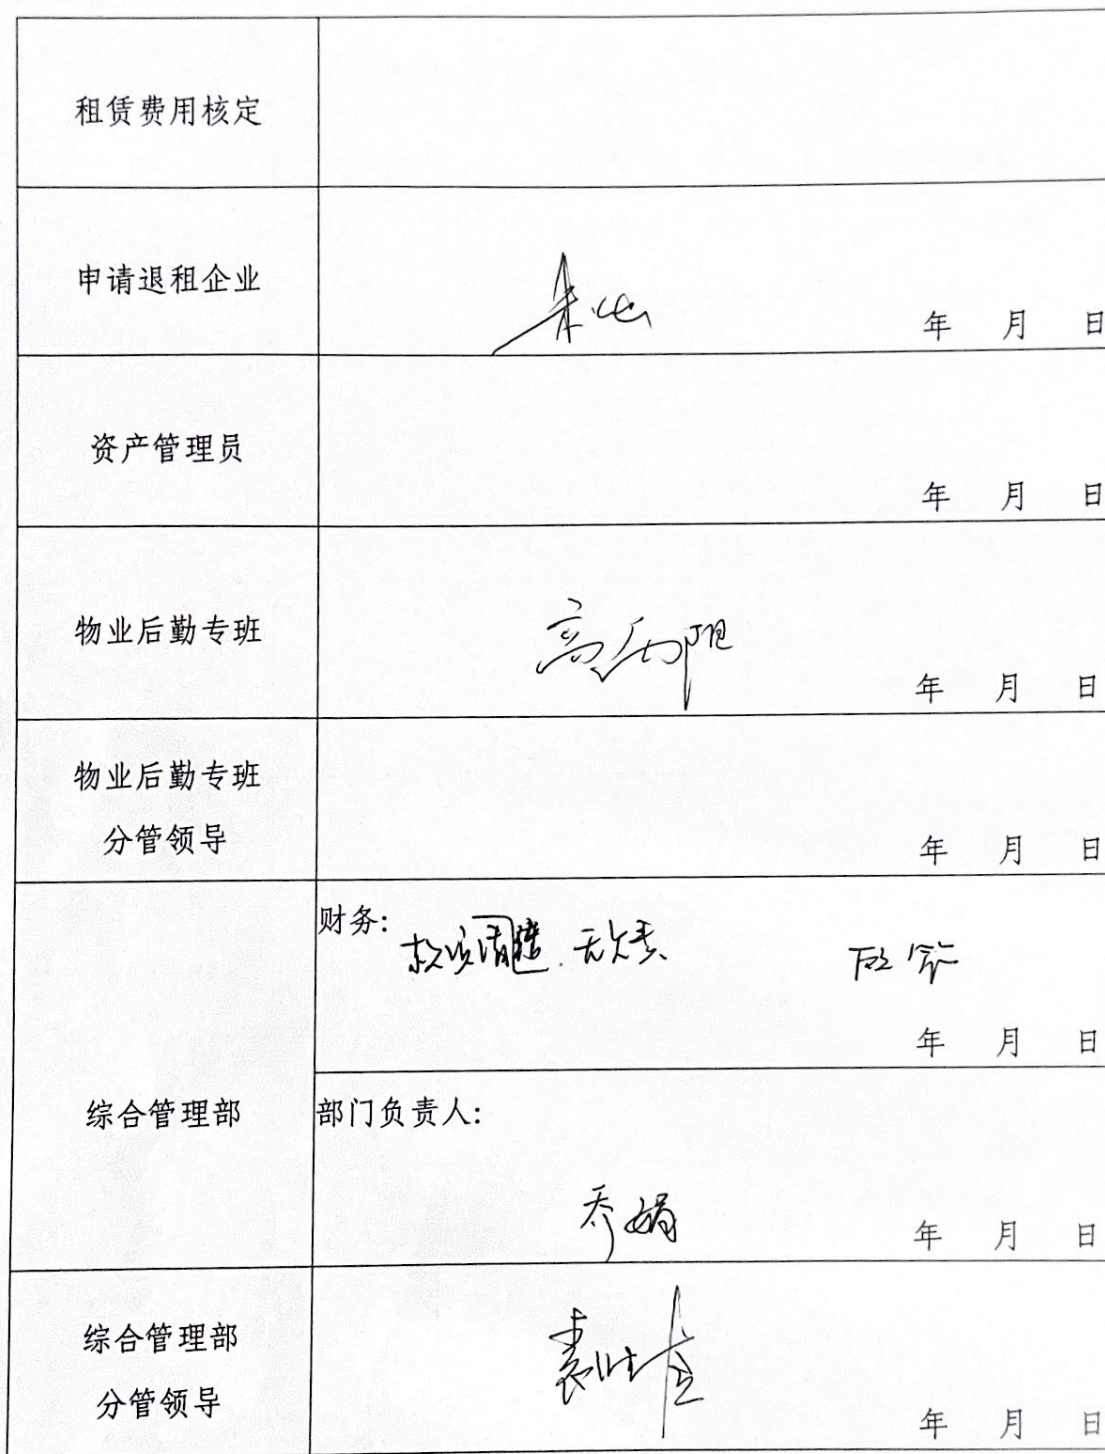 租赁费用核定
申请退租企业
年 月 日
资产管理员
年 月 日
物业后勤专班
高
年 月 日
物业后勤专班
分管领导
年 月 日
综合管理部
财务:
款项清 无欠费、
年 月 日
部门负责人:
乔娟
年 月 日
综合管理部
分管领导
袁
年 月 日